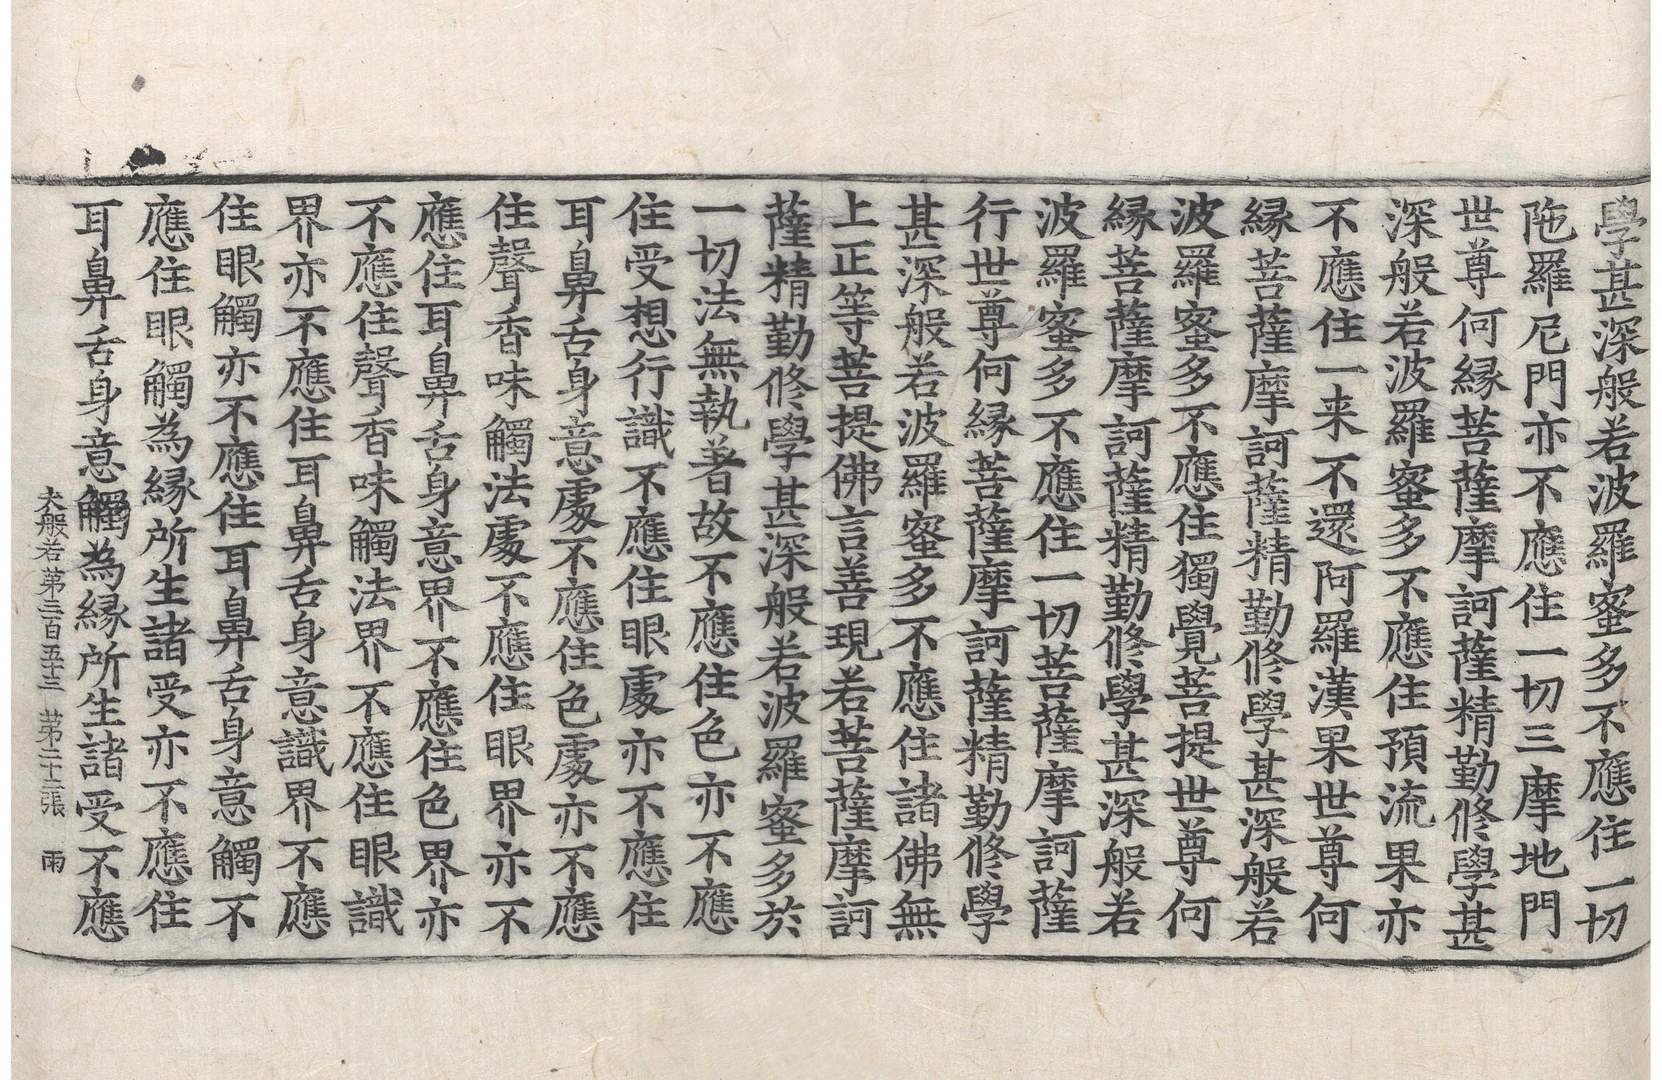 學甚深般若波羅蜜多不應住一切
陁羅尼門亦不應住一切三摩地門
世尊何縁菩薩摩訶薩精勤修學甚
深般若波羅蜜多不應住預流果亦
不應住一来不還阿羅漢果世尊何
縁菩薩摩訶薩精勤修學甚深般若
波羅蜜多不應住獨覺菩提世尊何
縁菩薩摩訶薩精勤修學甚深般若
波羅蜜多不應住一切菩薩摩訶薩
行世尊何縁菩薩摩訶薩精勤修學
甚深般若波羅蜜多不應住諸佛無
上正等菩提佛言善現若菩薩摩訶
薩精勤修學甚深般若波羅蜜多於
一切法無執著故不應住色亦不應
住受想行識不應住眼處亦不應住
耳鼻舌身意處不應住色處亦不應
住聲香味觸法處不應住眼界亦不
應住耳鼻舌身意界不應住色界亦
不應住聲香味觸法界不應住眼識
界亦不應住耳鼻舌身意識界不應
住眼觸亦不應住耳鼻舌身意觸不
應住眼觸為縁所生諸受亦不應住
耳鼻舌身意觸為縁所生諸受不應
大般若第三百五十三 第二十三張 雨